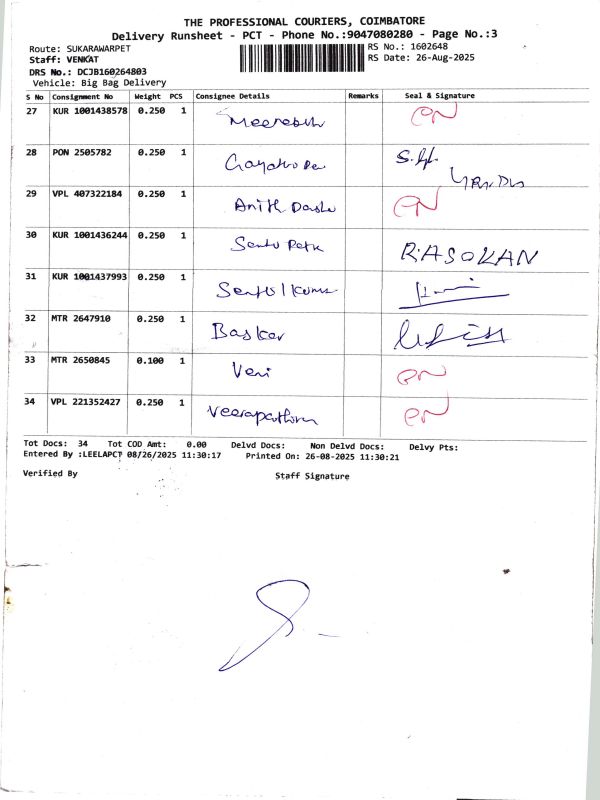 THE PROFESSIONAL COURIERS, COIMBATORE
Delivery Runsheet - PCT - Phone No.:9047080280 - Page No.:3
Route: SUKARAWARPET RS No.: 1602648
Staff: VENKAT RS Date: 26-Aug-2025
DRS No.: DCJB160264803
Vehicle: Big Bag Delivery
S No Consignment No Weight PCS Consignee Details Remarks Seal & Signature
27 KUR 1001438578 0.250 1
28 PON 2505782 0.250 1
29 VPL 407322184 0.250 1 Anith
30 KUR 1001436244 0.250 1 R.ASOKAN
31 KUR 1001437993 0.250 1
32 MTR 2647910 0.250 1 Basker
33 MTR 2650845 0.100 1 Veni
34 VPL 221352427 0.250 1
Tot Docs: 34 Tot COD Amt: 0.00 Delvd Docs: Non Delvd Docs: Delvy Pts:
Entered By :LEELAPCT 08/26/2025 11:30:17 Printed On: 26-08-2025 11:30:21
Verified By Staff Signature